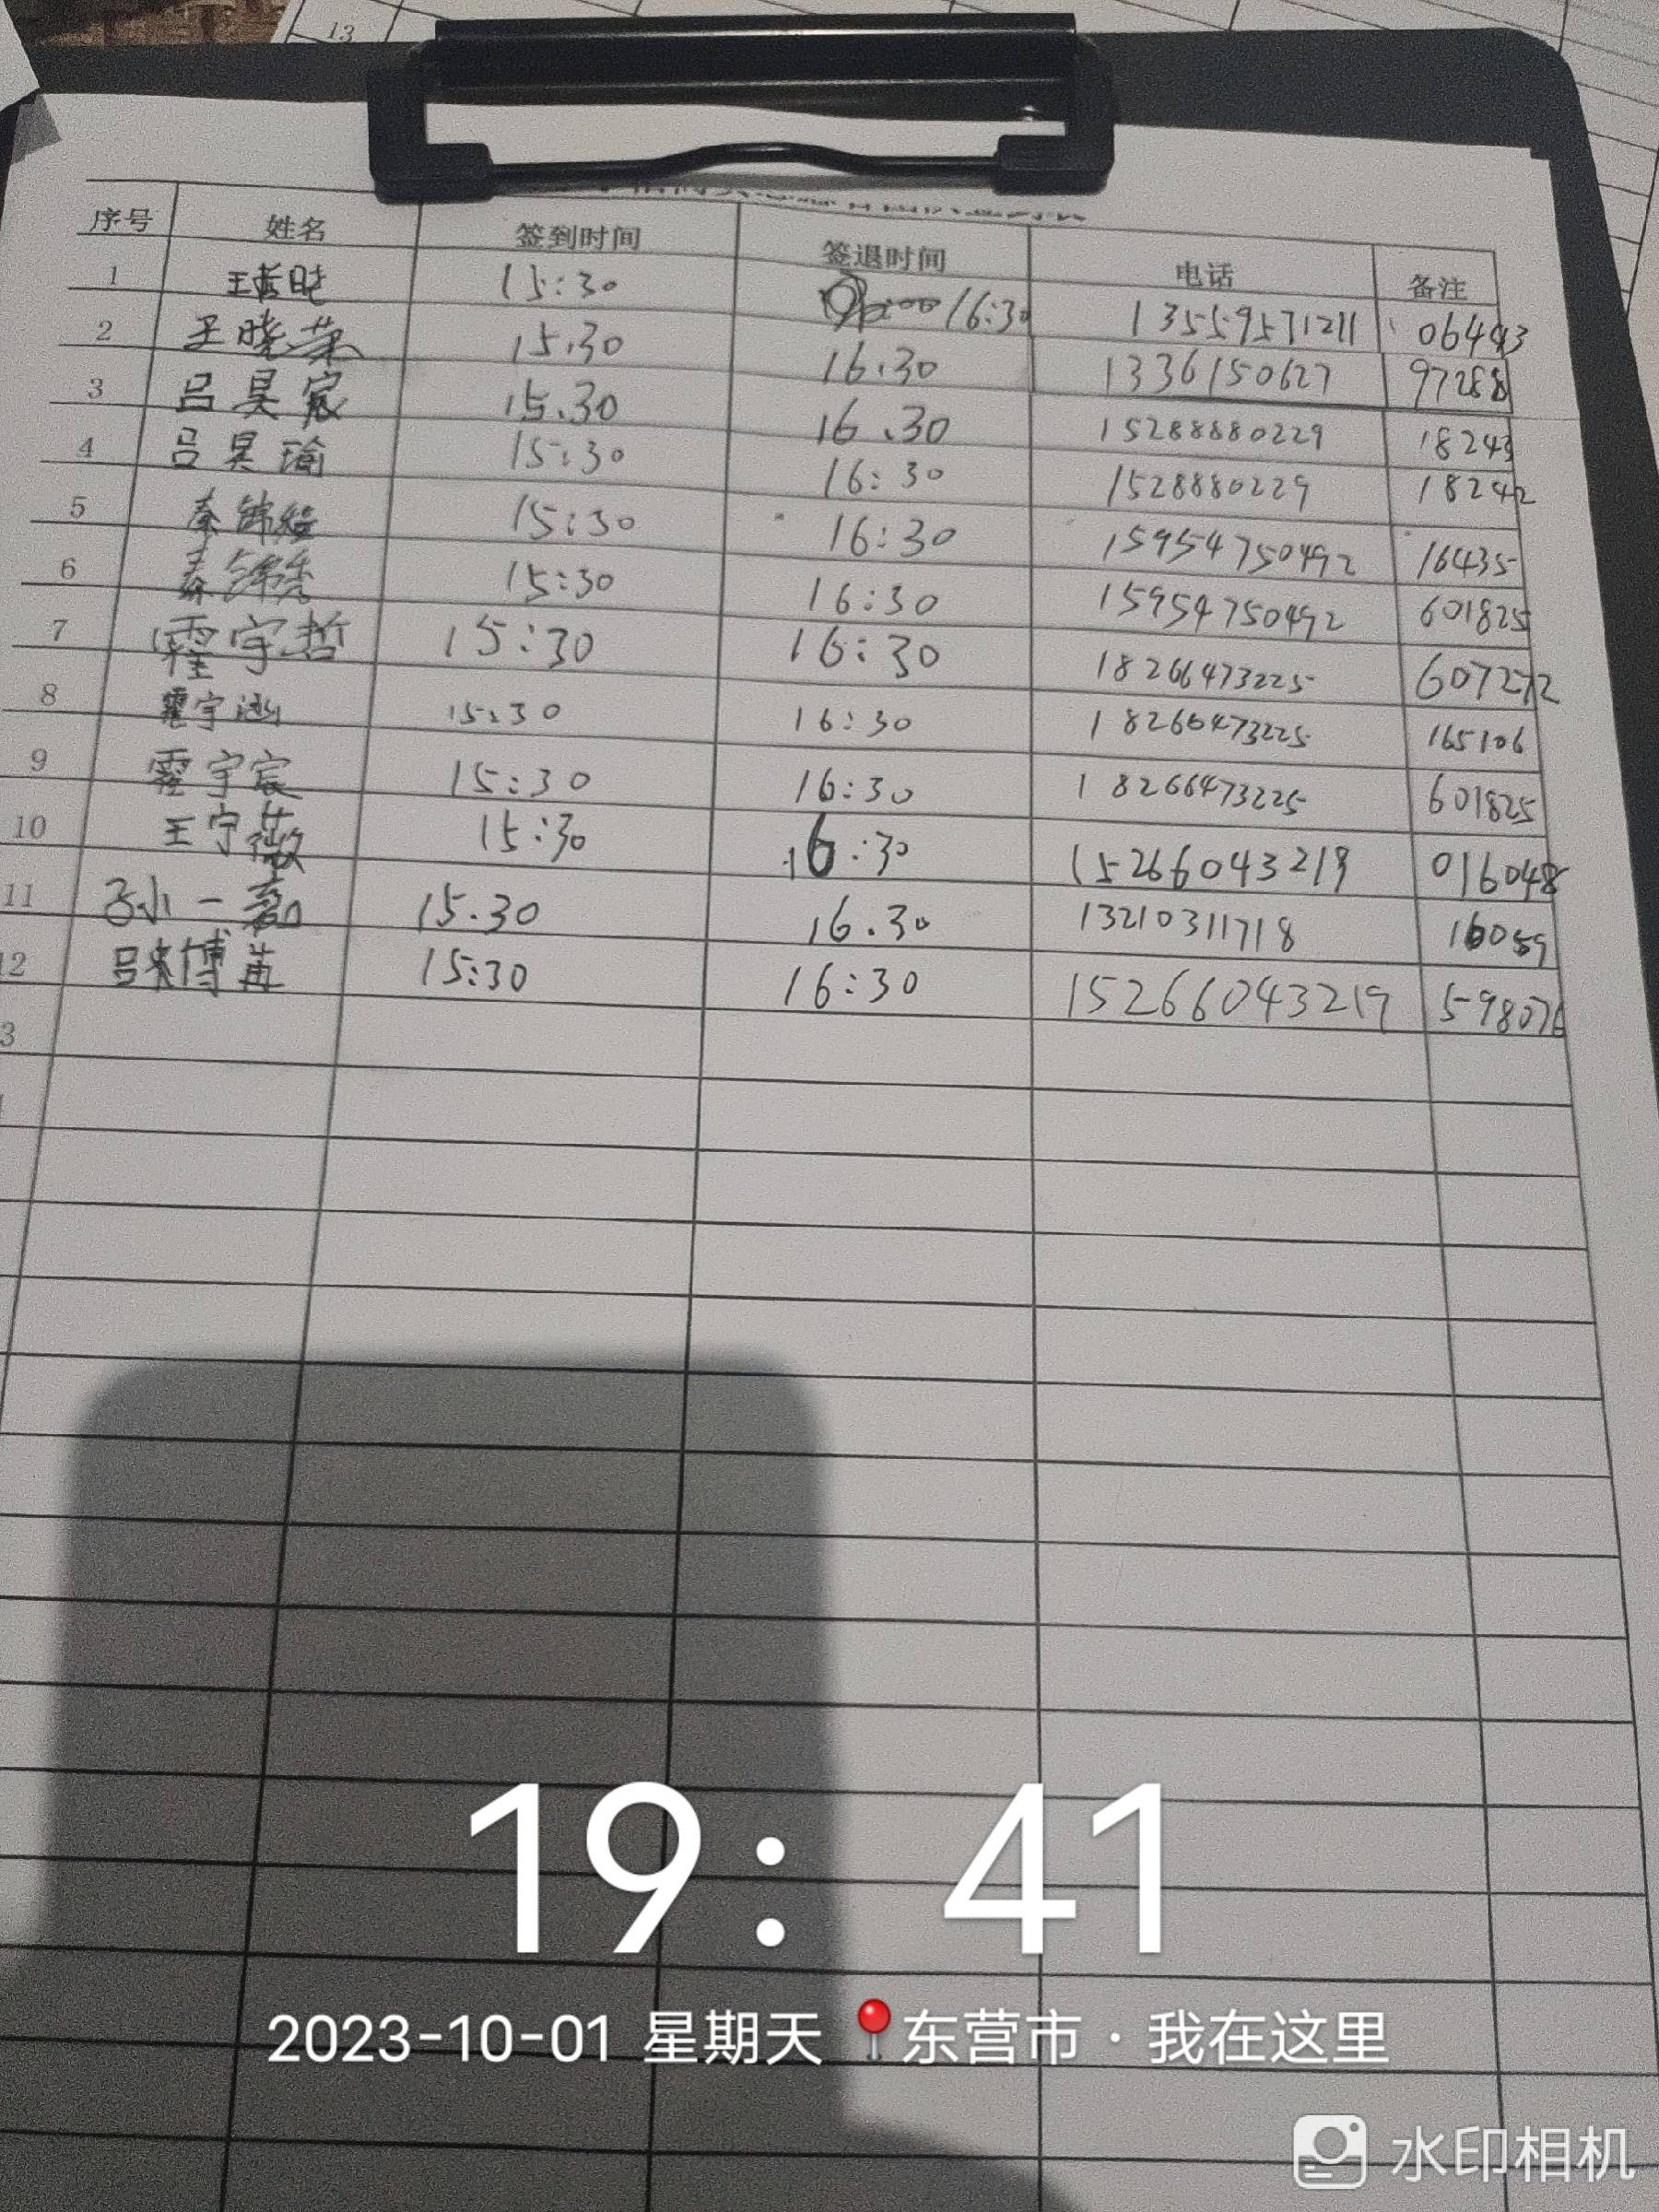 13
序号 姓名 签到时间 签退时间 电话 备注
1 15:30 16:30 13559571211 06443
2 王晓荣 15.30 16.30 1336150627 97288
3 吕昊宸 15.30 16.30 15288880229 18243
4 吕昊瑜 15:30 16:30 1528880229 18242
5 秦锦 15:30 16:30 15954750492 16435
6 秦 15:30 16:30 15954750492 601825
7 霍宇哲 15:30 16:30 18266473225 607272
8 霍宇涵 15:30 16:30 18266473225 165106
9 霍宇宸 15:30 16:30 18266473225 601825
10 王宁薇 15:30 16:30 15266043219 016048
11 小一 15.30 16.30 13210311718 16059
12 吕 15:30 16:30 15266043219 598076
3
19:41
2023-10-01 星期天 东营市·我在这里
水印相机